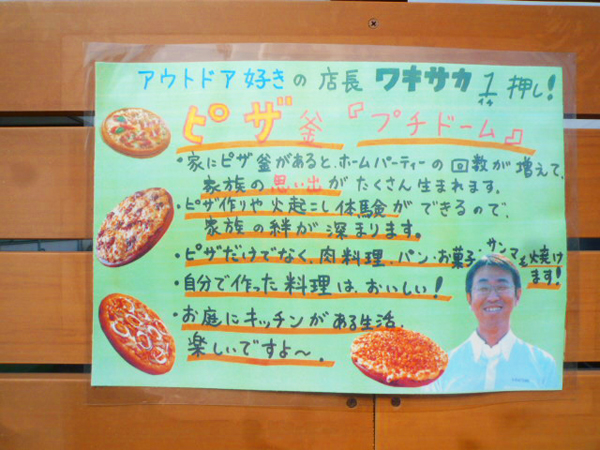 アウトドア好きの店長ワキサカ1押し!
イチ
ピザ釜『プチドーム』
・家にピザ釜があると、ホームパーティーの回数が増えて、
家族の思い出がたくさん生まれます。
・ピザ作りや火起こし体験ができるので、
家族の絆が深まります。
・ピザだけでなく、肉料理、パン・お菓子・サンマも焼け
ます!
・自分で作った料理は、おいしい!
・お庭にキッチンがある生活、
楽しいですよ～。